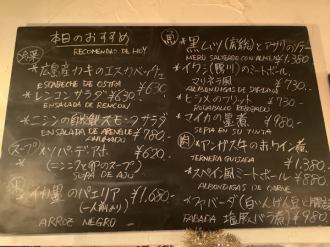 本日のおすすめ
RECOMENDAS DE HOY
冷菜
*広島産カキのエスカベッチェ
ESCABECHE DE OSTRA ¥630
*レンコンサラダ ¥630
ENSALADA DE RENCON
*ニシンの自家製スモークサラダ
ENSALADA DE ARENQUE AHUMADO ¥780.-
スープ ソパ・デ・アホ ¥620.
(ニンニクと卵のスープ)
SOPA DE AJO
イカ墨のパエリア ¥1,680.-
(一人前より)
ARROZ NEGRO
魚
*黒ムツ(常磐)とアサリのソテー
MERO SALTEADO CON ALMEJAS ¥1,380
*イワシ(鴨川)のミートボール
マリネラ風 ¥780.-
ALBONDIGAS DE SARDINA
*ヒラメのフリット ¥730.-
RODABALLO REBOZADO
*マイカの墨煮 ¥980.
SEPIA EN SU TINTA
肉
*アンガス牛のホワイン煮
TERNERA GUISADA ¥1,380
*スペイン風ミートボール ¥880.
ALBONDIGAS DE CARNE
*ファバーダ(白いんげん豆と腸詰
FABADA 塩豚バラ煮) ¥980